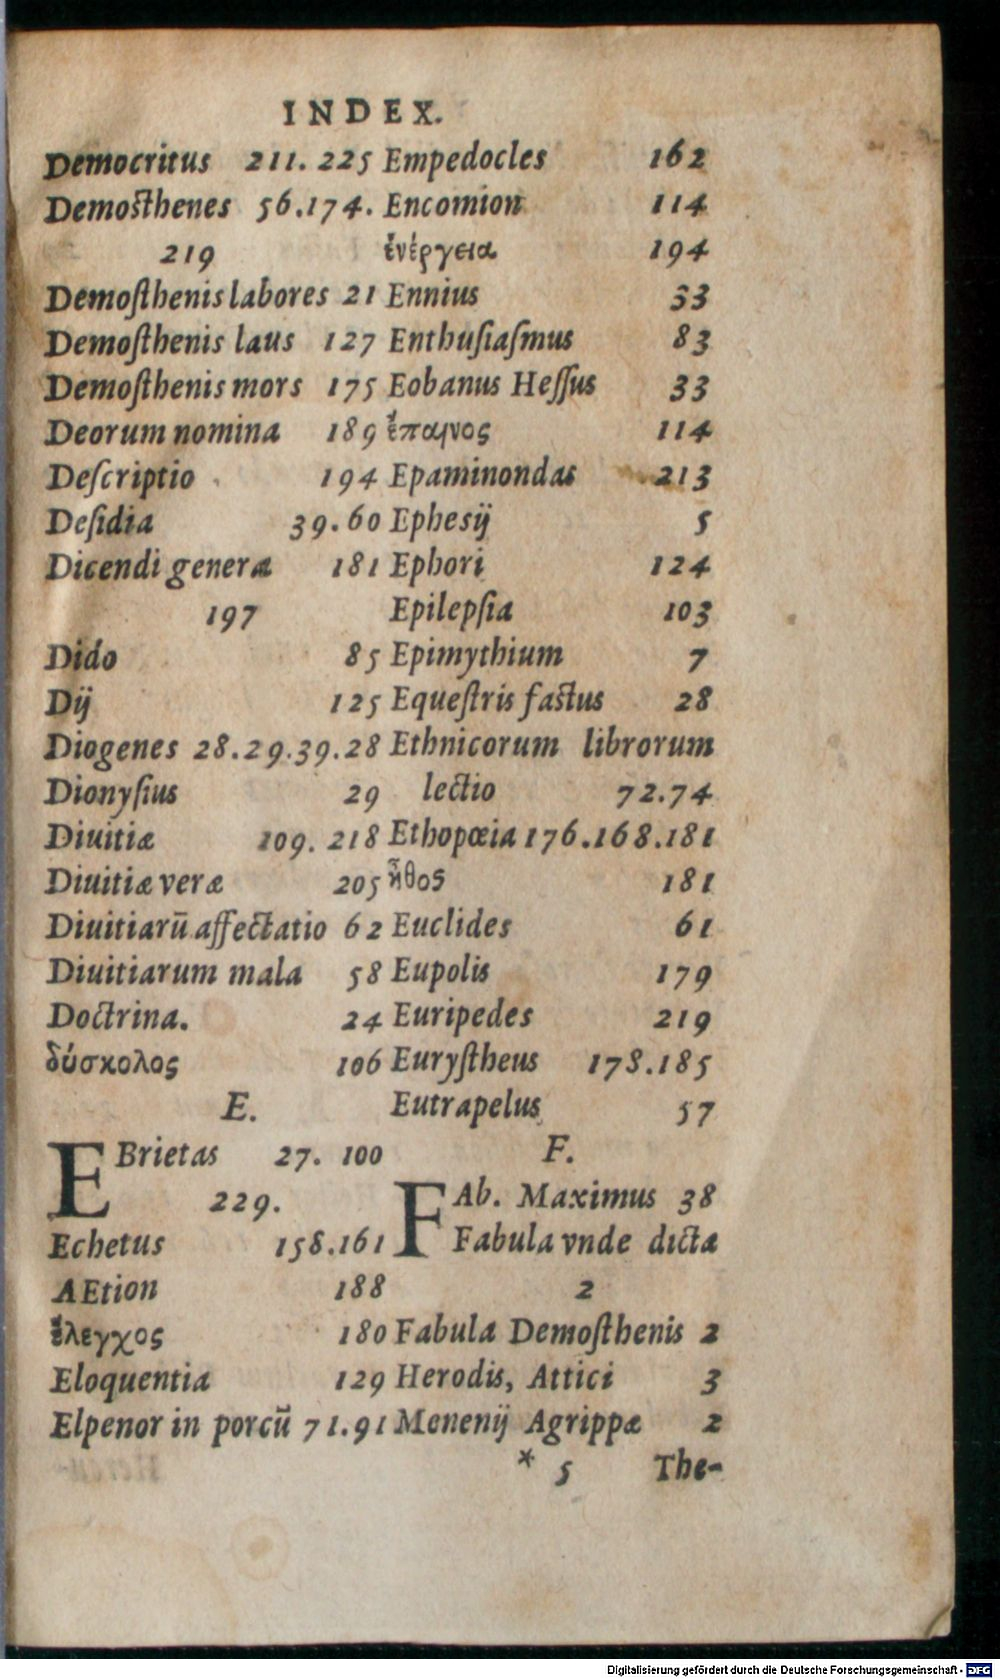 INDEX.
Democritus 211. 225
Demosthenes 56.174.
219
Demoſthenis labores 21
Demoſthenis laus 127
Demoſthenis mors 175
Deorum nomina 189
Deſcriptio 194
Deſidia 39.60
Dicendi genera 181
197
Dido 85
Dij 125
Diogenes 28.29.39.28
Dionyſius 29
Diuitiæ 109. 218
Diuitiæ veræ 205
Diuitiarū affectatio 62
Diuitiarum mala 58
Doctrina. 24
δύσκολος 106
E.
EBrietas 27. 100
229.
Echetus 158.161
AEtion 188
ἔλεγχος 180
Eloquentia 129
Elpenor in porcū 71.91
Empedocles 162
Encomion 114
ἐνέργεια 194
Ennius 33
Enthuſiaſmus 83
Eobanus Heſſus 33
ἔπαινος 114
Epaminondas 213
Ephesij 5
Ephori 124
Epilepſia 103
Epimythium 7
Equeſtris faſtus 28
Ethnicorum librorum
lectio 72.74
Ethopœia 176.168.181
ἦθος 181
Euclides 61
Eupolis 179
Euripedes 219
Euryſtheus 178.185
Eutrapelus 57
F.
FAb. Maximus 38
Fabula vnde dicta
2
Fabula Demoſthenis 2
Herodis, Attici 3
Menenij Agrippæ 2
* 5 The-
Digitalisierung gefördert durch die Deutsche Forschungsgemeinschaft - DFG